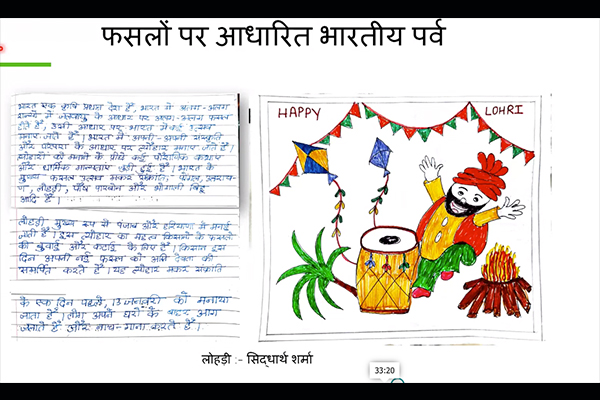 फसलों पर आधारित भारतीय पर्व
भारत एक कृषि प्रधान देश है, भारत में अलग-अलग
राज्यों में जलवायु के आधार पर अलग-अलग फसल
होते हैं, उसी आधार पर भारत में कई उत्सव
मनाए जाते हैं। भारत में अपनी-अपनी संस्कृति
और परंपरा के आधार पर त्योहार मनाए जाते हैं।
त्योहारों को मनाने के पीछे कई पौराणिक कथाएं
और धार्मिक मान्यताएं जुड़ी हुई हैं। भारत के
मुख्य फसल उत्सव मकर संक्रांति, पोंगल, उत्तराय-
ण, लोहड़ी, पौष पारबोन और भोगाली बिहू
आदि हैं।
लोहड़ी मुख्य रूप से पंजाब और हरियाणा में मनाई
जाती है। इस त्योहार का महत्व किसानों के फसलों
की बुवाई और कटाई के लिए है। किसान इस
दिन अपनी नई फसल को अग्नि देवता की
समर्पित करते हैं। यह त्योहार मकर संक्रांति
के एक दिन पहले, 13 जनवरी को मनाया
जाता है। लोग अपने घरों के बाहर आग
जलाते हैं और नाच-गाना करते हैं।
HAPPY LOHRI
लोहड़ी :- सिद्धार्थ शर्मा
33:20